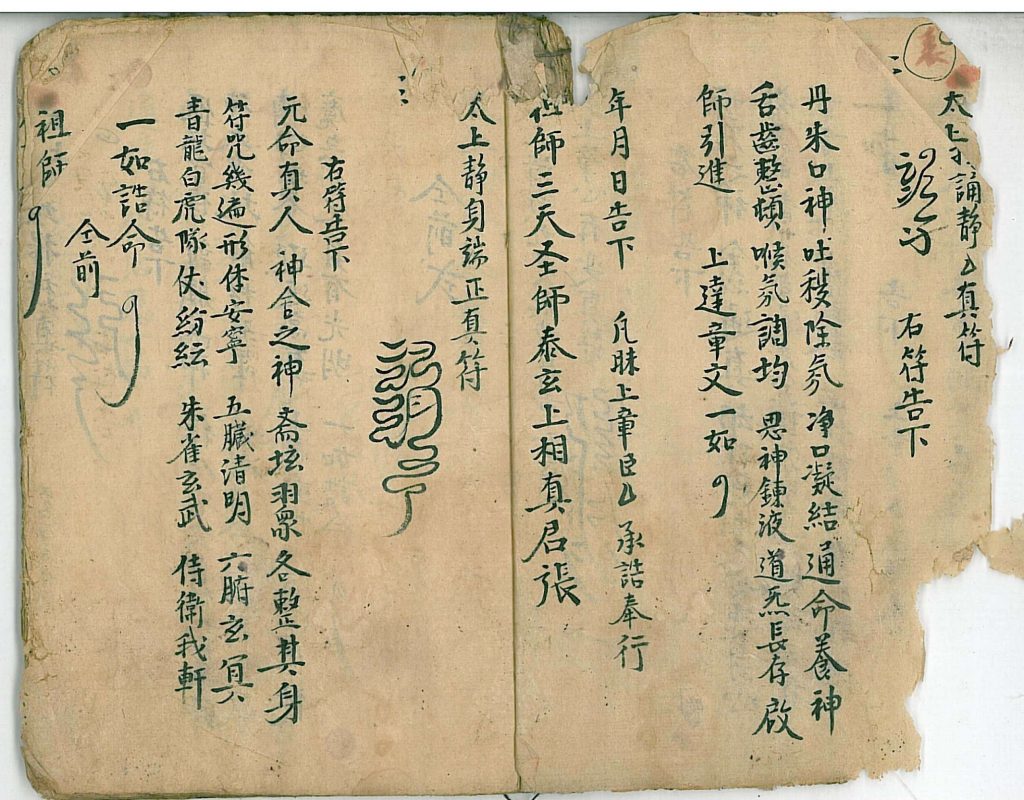 太上 誦靜 真符
右符告下
丹朱口神 吐穢除氛 淨口凝結 通命養神
舌齒整頓 喉氛調均 思神鍊液 道炁長存 啟
師引進 上達章文 一如
年月日告下 凡昧上章臣厶 承誥奉行
祖師三天圣師泰玄上相真君張
太上靜身端正真符
右符告下
元命真人 神舍之神 斋坛羽眾 各整其身
符咒幾遍 形体安寧 五臟清明 六腑玄冥
青龍白虎 隊仗紛紜 朱雀玄武 侍衛我軒
一如誥命
仝前
祖師